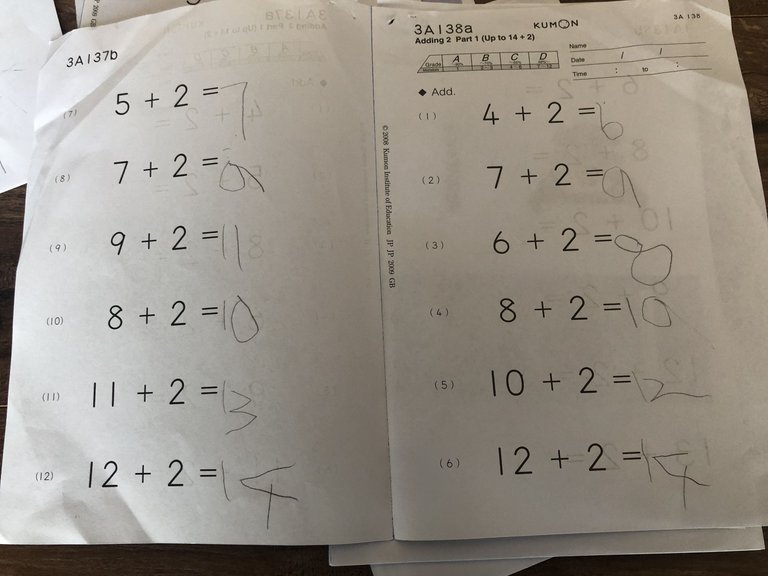 3A137b
(7) 5 + 2 = 7
(8) 7 + 2 = 9
(9) 9 + 2 = 11
(10) 8 + 2 = 10
(11) 11 + 2 = 13
(12) 12 + 2 = 14
© 2008 Kumon Institute of Education JP JP 2009 GB
3A138a
KUMON
3A 138
Adding 2 Part 1 (Up to 14 + 2)
Grade A B C D
Name
Date / /
Time : to :
◆ Add.
(1) 4 + 2 = 6
(2) 7 + 2 = 9
(3) 6 + 2 = 8
(4) 8 + 2 = 10
(5) 10 + 2 = 12
(6) 12 + 2 = 14